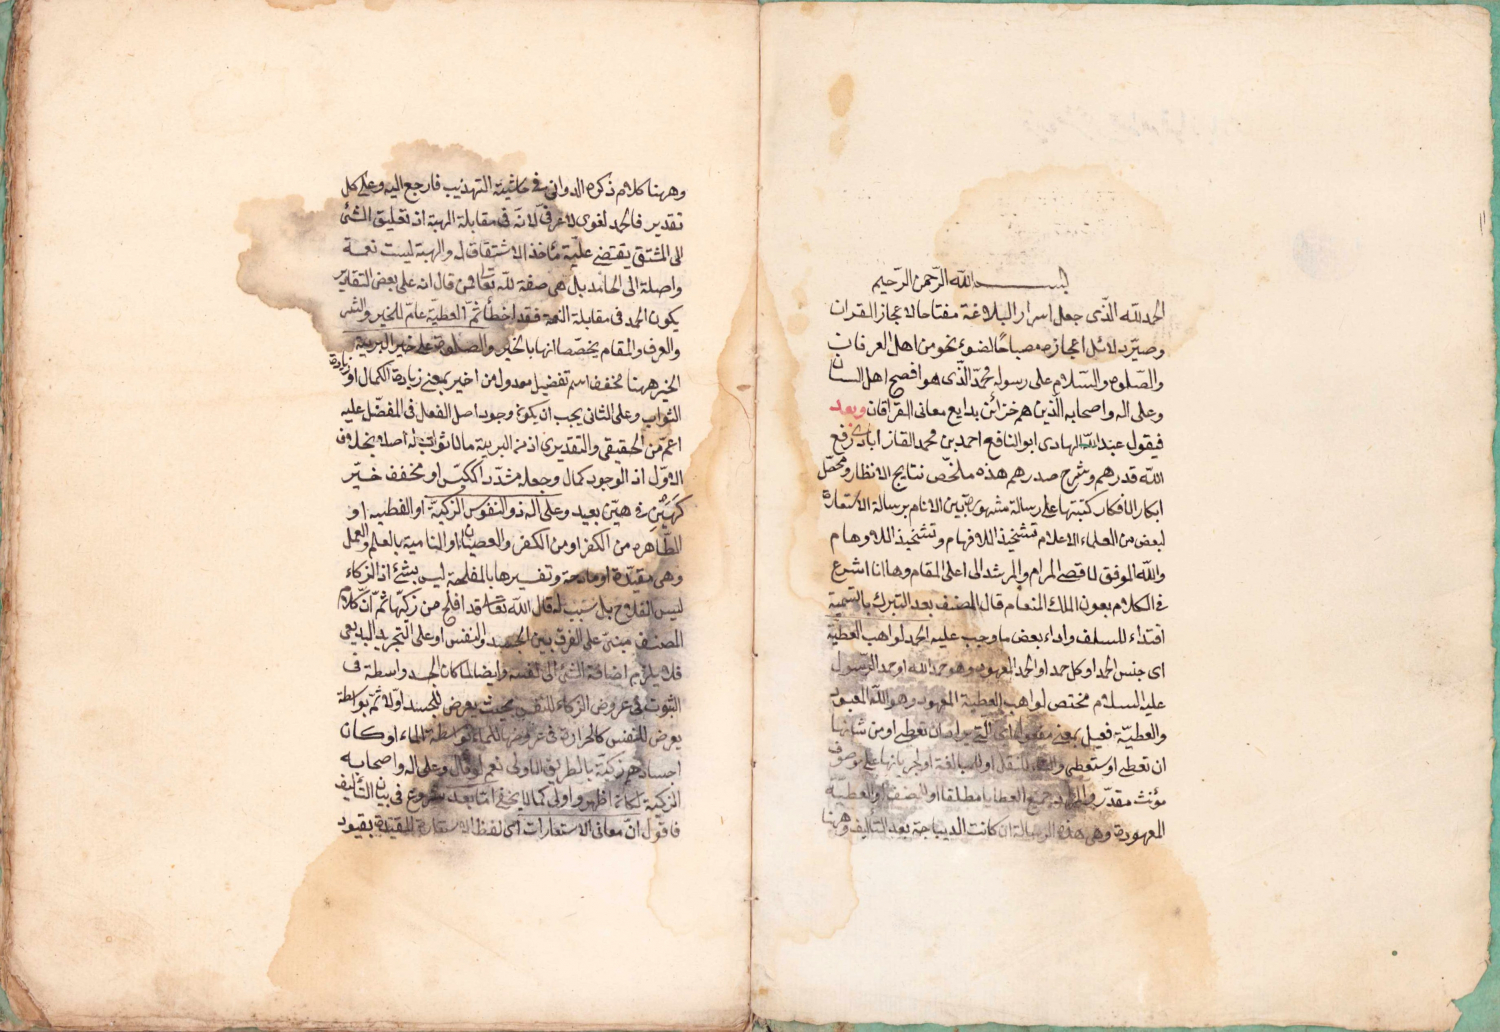 بسم الله الرحمن الرحيم
الحمد لله الذى جعل اسرار البلاغة مفتاحا لاعجاز القران
وصيّر دلائل اعجازه مصباحًا لضوء نحو من اهل العرفان
والصّلوة والسّلام على رسوله محمّد الّذى هو افصح اهل اللسان
وعلى اله واصحابه الّذين هم خزائن بدايع معانى الفرقان وبعد
فيقول عبد الله الهادى ابو النافع احمد بن محمد القازابادى رفع
الله قدرهم وشرح صدرهم هذه ملخّص نتايج الانظار ومحصّل
ابكار الافكار كتبتها على رسالة مشهورة بين الانام برسالة الاستعارة
لبعض من العلماء الاعلام تشخيذا للافهام وتشخيذا للاوهام
والله الموفق لاقصى المرام والمرشد الى اعلى المقام وها انا اشرع
فى الكلام بعون الملك المنعام قال المصنف بعد التبرك بالتسمية
اقتداء للسلف واداء بعض ما وجب عليه الحمد لواهب العطيّة
اى جنس الحمد او كل حمد او الحمد المعهود وهو حمد الله او حمد الرّسول
عليه السلام مختص لواهب العطية المعهود وهو الله المعبود
والعطيّة فعيل بمعنى مفعول اى الّتى يراد ان تعطى او من شانها
ان تعطى او ستعطى والتاء للنقل او للمبالغة او لجريانها على موصوف
مؤنث مقدّر والمراد جميع العطايا مطلقا او للبعض او العطيّة
المعهودة وهى هذه الرسالة ان كانت الديباجة بعد التأليف وههنا
وههنا كلام ذكره الدوانى فى حاشية التهذيب فارجع اليه وعلى كل
تقدير فالحمد لغوى لا عرفى لانّه فى مقابلة الهبة اذ تعليق الشئ
الى المشتق يقتضى عليّة مأخذ الاشتقاق له والهبة ليست نعمة
واصلة الى الحامد بل هى صفة لله تعالى فمن قال انه على بعض التقادير
يكون الحمد فى مقابلة النعمة فقد اخطأ ثمّ العطيّة عامّ للخير والشر
والعرف والمقام يخصّصانها بالخير والصلوة على خير البرية
الخير ههنا مخفف اسم تفضيل معدول من اخير بمعنى زيادة الكمال او زيادة
الثواب وعلى الثانى يجب ان يكون وجود اصل الفعل فى المفضّل عليه
اعمّ من الحقيقى والتقديرى اذ من البرية ما لا ثواب له اصلا بخلاف
الاوّل اذ الوجود كمال وجعله مشدّدا ككيّس او مخفف خيّر
كهَيْن فى هيّن بعيد وعلى آله ذو النفوس الزكيّة او الفطنية او
الطّاهره من الكفر او من الكفر والعصيان او النامية بالعلم والعمل
وهى مقيّدة او مادحة وتفسيرها بالمفلحة ليس بشئ اذ الزكاء
ليس الفلاح بل سبب له قال الله تعالى قد افلح من زكّيها ثمّ انّ كلام
المصنف مبنىّ على الفرق بين الجسد والنفس او على التجريد البديعى
فلا يلزم اضافة الشئ الى نفسه وايضا لما كان الجسد واسطة فى
الثبوت فى عروض الزكاء للنفس بحيث يعرض للجسد اولا ثمّ بواسطة
يعرض للنفس كالحرارة فى عروضها للماء بواسطة الماء او كان
اجسادهم زكيّة بالطريق الاولى نعم لو قال وعلى اله واصحابه
الزكية لكان اظهر واولى كما لا يخفى امّا بعد شروع فى بيان التأليف
فاقول انّ معانى الاستعارات اى لفظ الاستعارة المقيّدة بقيود